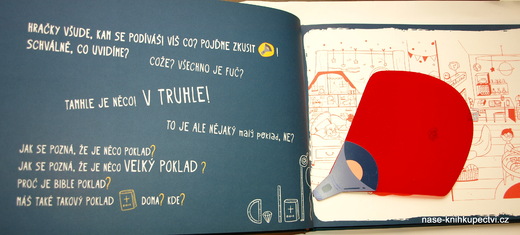 HRAČKY VŠUDE, KAM SE PODÍVÁŠ! VÍŠ CO? POJĎME ZKUSIT !
SCHVÁLNĚ, CO UVIDÍME?
COŽE? VŠECHNO JE FUČ?
TAMHLE JE NĚCO! V TRUHLE!
TO JE ALE NĚJAKÝ MALÝ POKLAD, NE?
JAK SE POZNÁ, ŽE JE NĚCO POKLAD?
JAK SE POZNÁ, ŽE JE NĚCO VELKÝ POKLAD?
PROČ JE BIBLE POKLAD?
MÁŠ TAKÉ TAKOVÝ POKLAD DOMA? KDE?
nase-knihkupectvi.cz